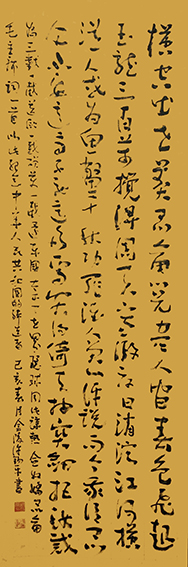 横空出世莽昆仑阅尽人间春色飞起
玉龙三百万搅得周天寒彻夏日消溶江河横
溢人或为鱼鳖千秋功罪谁人曾与评说而今我谓昆
仑不要这高不要这多雪安得倚天抽宝剑把汝裁
为三截一截遗欧一截赠美一截还东国太平世界环球同此凉热念奴娇昆仑
毛主席词一首 中华人民共和国 己亥春月金陵 书